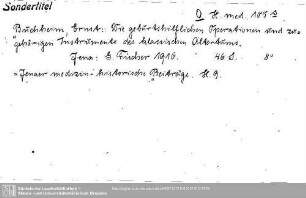 Sondertitel
O H. med. 188
Buchheim, Ernst: Die geburtshilflichen Operationen und zu-
gehörigen Instrumente des klassischen Altertums.
Jena: G. Fischer 1916. 46 S. 8°
= Jenaer medizin-historische Beiträge. H. 9.
Sächsische Landesbibliothek -
Staats- und Universitätsbibliothek Dresden